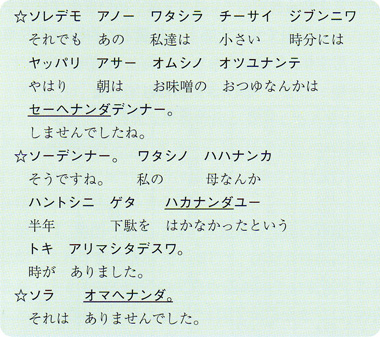 ☆ソレデモ アノー ワタシラ チーサイ ジブンニワ
それでも あの 私達は 小さい 時分には
ヤッパリ アサー オムシノ オツユナンテ
やはり 朝は お味噌の おつゆなんかは
セーヘナンダデンナー。
しませんでしたね。
☆ソーデンナー。 ワタシノ ハハナンカ
そうですね。 私の 母なんか
ハントシニ ゲタ ハカナンダユー
半年 下駄を はかなかったという
トキ アリマシタデスワ。
時が ありました。
☆ソラ オマヘナンダ。
それは ありませんでした。